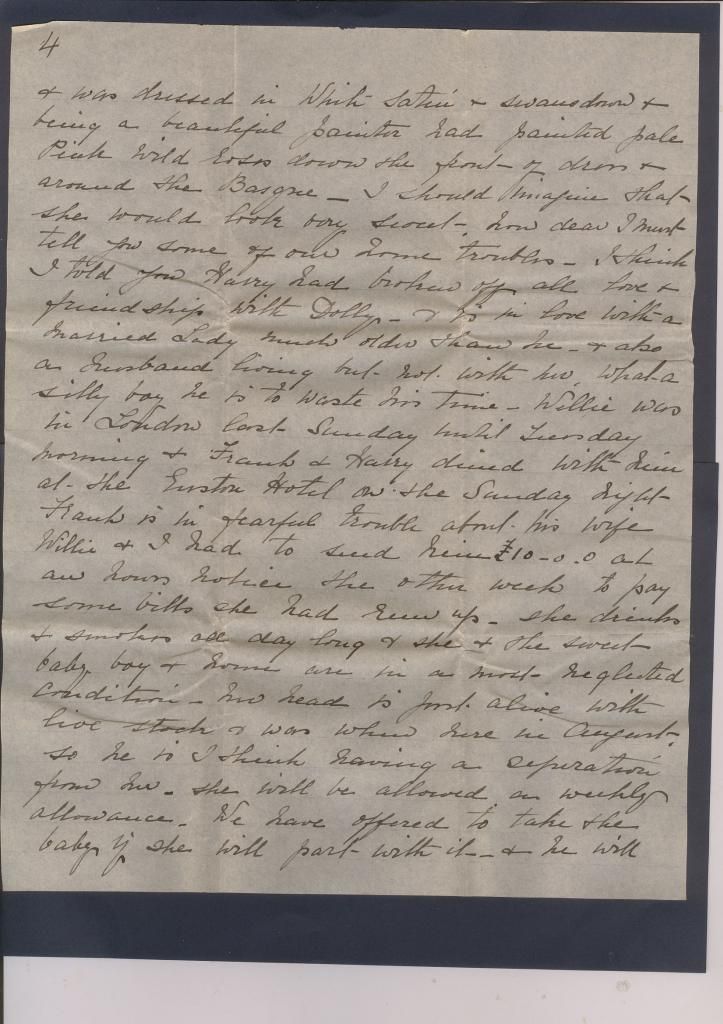 4
& was dressed in White Satin & swansdown &
being a beautiful painter had painted pale
Pink Wild Roses down the front of dress &
around the Basque – I should imagine that
she would look very sweet – now dear I must
tell you some of our home troubles – I think
I told you Harry had broken off all love &
friendship with Dolly – & is in love with a
Married Lady much older than he – & also
a husband living but not with her, what a
silly boy he is to waste his time – Willie was
in London last Sunday until Tuesday
morning & Frank & Harry dined with him
at the Euston Hotel on the Sunday night
Frank is in fearful trouble about his wife
Willie & I had to send him £10-0.0 at
an hours notice the other week to pay
some bills she had run up – she drinks
& smokes all day long & she & the sweet
baby boy & home are in a most neglected
Condition – her head is just alive with
live stock & was when here in August,
so he is I think having a seperation
from her – she will be allowed a weekly
allowance – We have offered to take the
baby if she will part with it – & he will